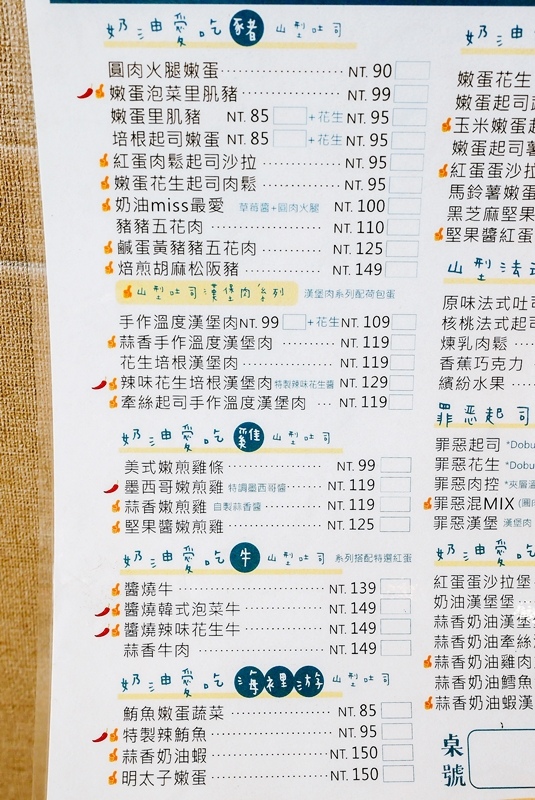 奶油愛吃豬 山型吐司
圓肉火腿嫩蛋 NT. 90
嫩蛋泡菜里肌豬 NT. 99
嫩蛋里肌豬 NT. 85 +花生 NT. 95
培根起司嫩蛋 NT. 85 +花生 NT. 95
紅蛋肉鬆起司沙拉 NT. 95
嫩蛋花生起司肉鬆 NT. 95
奶油miss最愛 草莓醬+圓肉火腿 NT. 100
豬豬五花肉 NT. 110
鹹蛋黃豬豬五花肉 NT. 125
焙煎胡麻松阪豬 NT. 149
山型吐司漢堡肉系列 漢堡肉系列配荷包蛋
手作溫度漢堡肉 NT. 99 +花生 NT. 109
蒜香手作溫度漢堡肉 NT. 119
花生培根漢堡肉 NT. 119
辣味花生培根漢堡肉 特製辣味花生醬 NT. 129
牽絲起司手作溫度漢堡肉 NT. 119
奶油愛吃雞 山型吐司
美式嫩煎雞條 NT. 99
墨西哥嫩煎雞 特調墨西哥醬 NT. 119
蒜香嫩煎雞 自製蒜香醬 NT. 119
堅果醬嫩煎雞 NT. 125
奶油愛吃牛 山型吐司 系列搭配特選紅蛋
醬燒牛 NT. 139
醬燒韓式泡菜牛 NT. 149
醬燒辣味花生牛 NT. 149
蒜香牛肉 NT. 149
奶油愛吃海裡游 山型吐司
鮪魚嫩蛋蔬菜 NT. 85
特製辣鮪魚 NT. 95
蒜香奶油蝦 NT. 150
明太子嫩蛋 NT. 150
奶油
嫩蛋花生
嫩蛋起司
玉米嫩蛋起
嫩蛋起司薯
紅蛋蛋沙拉
馬鈴薯嫩蛋
黑芝麻堅果
堅果醬紅蛋
山型法
原味法式吐司
核桃法式起司
煉乳肉鬆
香蕉巧克力
繽紛水果
罪惡起司
罪惡起司 *Dobu
罪惡花生 *Dobu
罪惡肉控 *夾層
罪惡混MIX (圓
罪惡漢堡 漢堡肉
奶油愛吃
紅蛋蛋沙拉堡
奶油漢堡堡
蒜香奶油漢堡
蒜香奶油牽絲
蒜香奶油雞肉
蒜香奶油鱈魚
蒜香奶油蝦漢
桌號